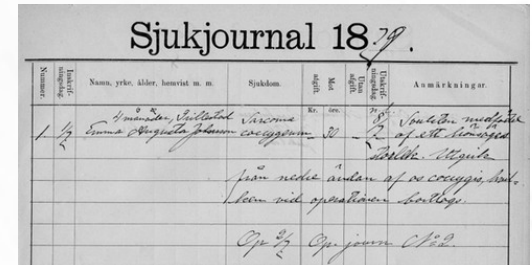 Sjukjournal 1879.
Nummer. Inskrif-ningsdag. Namn, yrke, ålder, hemvist m. m. Sjukdom. Mot afgift. Utan afgift. Utskrif-ningsdag. Anmärkningar.
Kr. öre.
4 månader, Sarcoma 8/ medfödd
1. 1/2 Emma Augusta Johansson coccygeum 30 af ett hönsäggs
storlek. Utgick
från nedre ändan af os coccygis, hvil-
ken vid operationen borttogs.
Op 2/7 Op journ No 2.